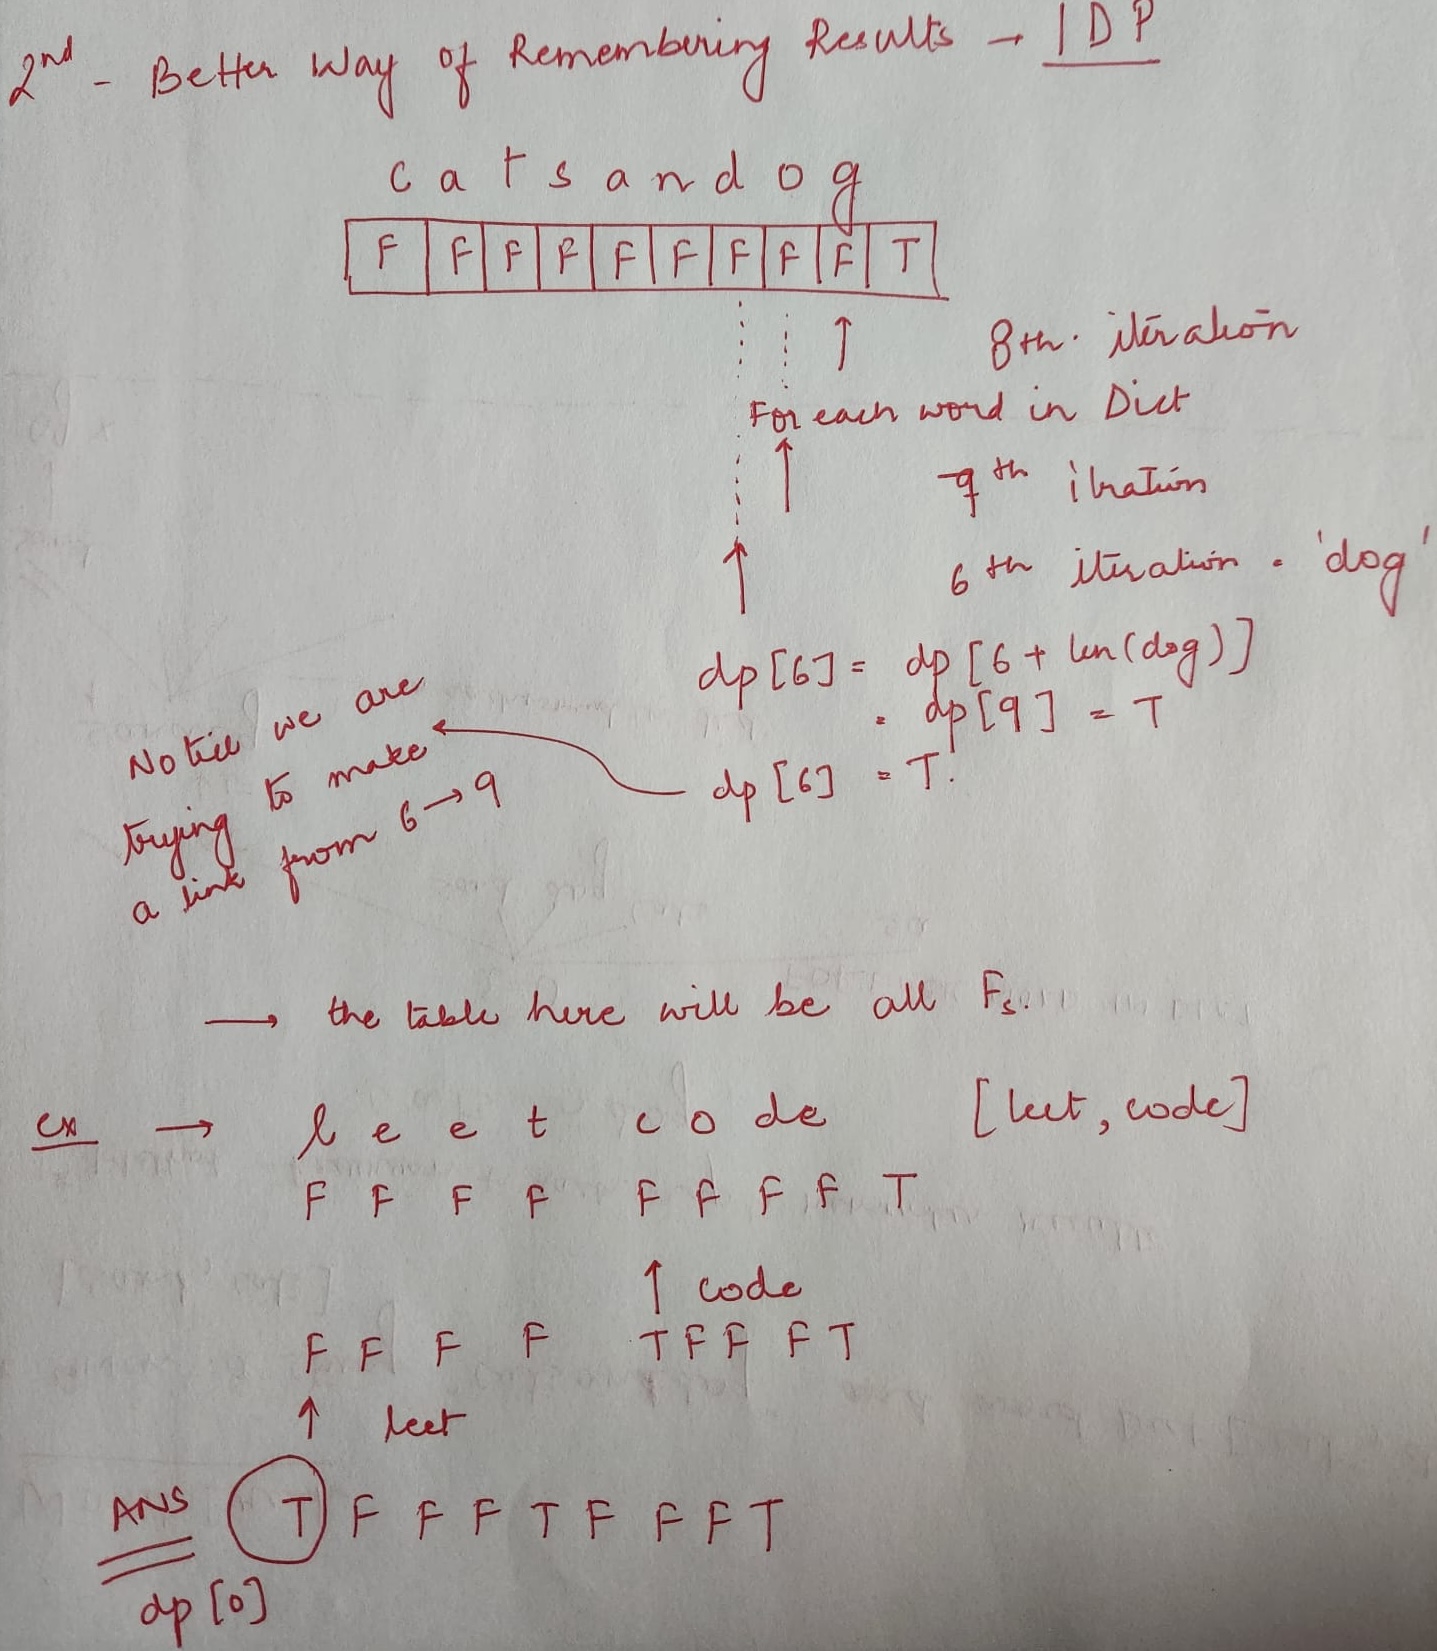 2nd - Better Way of Remembering Results → 1DP
c a t s a n d o g
F F F F F F F F F T
8th. iteration
For each word in Dict
7th iteration
6th iteration . 'dog'
dp[6] = dp[6 + len(dog)]
= dp[9] = T
dp[6] = T.
Notice we are
trying to make
a link from 6→9
→ the table here will be all Fs.
ex → l e e t c o d e [leet, code]
F F F F F F F F T
↑ code
F F F F T F F F T
↑ leet
ANS T F F F T F F F T
dp[0]